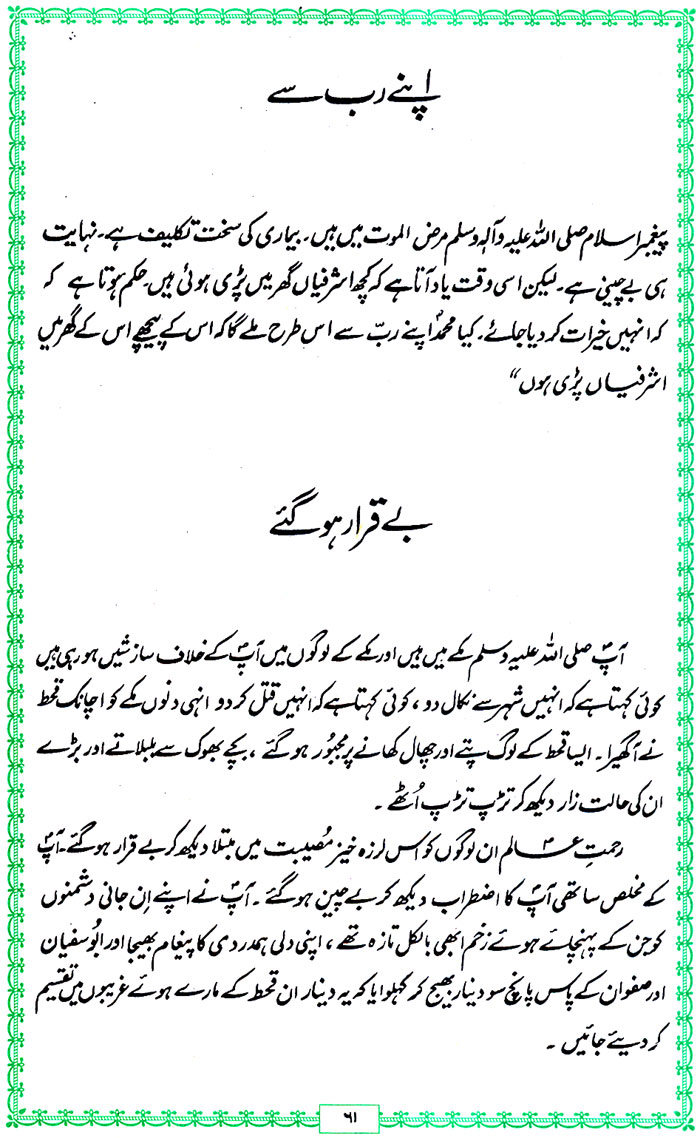 اپنے رب سے
پیغمبر اسلام صلی اللہ علیہ وآلہ وسلم مرض الموت میں ہیں۔ بیماری کی سخت تکلیف ہے۔ نہایت
ہی بے چینی ہے۔ لیکن اسی وقت یاد آتا ہے کہ کچھ اشرفیاں گھر میں پڑی ہوئی ہیں۔ حکم ہوتا ہے کہ
کہ انہیں خیرات کر دیا جائے۔ کیا محمدؐ اپنے ربّ سے اس طرح ملے گا کہ اس کے پیچھے اس کے گھر میں
اشرفیاں پڑی ہوں“
بے قرار ہو گئے
آپؐ صلی اللہ علیہ وسلم مکے میں ہیں اور مکے کے لوگوں میں آپؐ کے خلاف سازشیں ہو رہی ہیں
کوئی کہتا ہے کہ انہیں شہر سے نکال دو، کوئی کہتا ہے کہ انہیں قتل کر دو انہی دنوں مکے کو اچانک قحط
نے آگھیرا۔ ایسا قحط کے لوگ پتے اور چھال کھانے پر مجبُور ہو گئے، بچے بھوک سے بلبلاتے اور بڑے
ان کی حالت زار دیکھ کر تڑپ تڑپ اُٹھے۔
رحمتِ عالم ان لوگوں کو اس لرزہ خیز مُصیبت میں مبتلا دیکھ کر بے قرار ہو گئے۔ آپؐ
کے مخلص ساتھی آپؐ کا اضطراب دیکھ کر بے چین ہو گئے۔ آپؐ نے اپنے اِن جانی دشمنوں
کو جن کے پہنچائے ہوئے زخم ابھی بالکل تازہ تھے، اپنی دلی ہمدردی کا پیغام بھیجا اور ابُوسفیان
اور صفوان کے پاس پانچ سو دینار بھیج کر کہلوایا کہ یہ دینار ان قحط کے مارے ہوئے غریبوں میں تقسیم
کر دیئے جائیں۔
۶۱